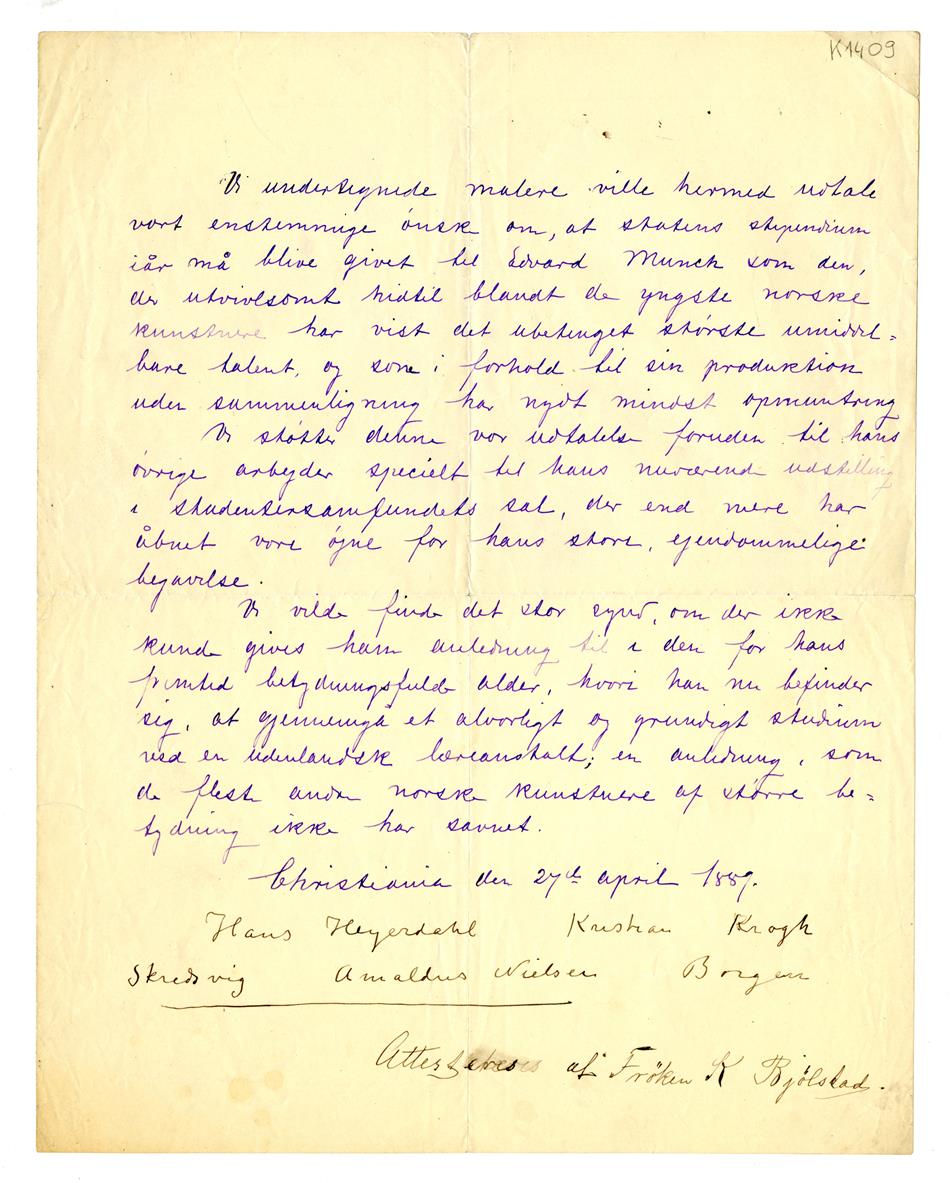 K1409
Vi undertegnede malere ville hermed udtale
vort enstemmige önske om, at statens stipendium
iår må blive givet til Edvard Munch som den,
der utvivlsomt hidtil blandt de yngste norske
kunstnere har vist det ubetinget störste umiddel=
bare talent, og som i forhold til sin produktion
uden sammenligning har nydt mindst opmuntring
Vi støtter denne vor udtalelse foruden til hans
övrige arbejder specielt til hans nuværende udstilling
i studentersamfundets sal, der end mere har
åbnet vore øjne for hans store, ejendommelige
begavelse.
Vi vilde finde det stor synd, om der ikke
kunde gives ham anledning til i den for hans
fremtid betydningsfulde alder, hvori han nu befinder
sig, at gjennemgå et alvorligt og grundigt studium
ved en udenlandsk læreanstalt; en anledning, som
de fleste andre norske kunstnere af större be=
tydning ikke har savnet.
Christiania den 27de april 1889.
Hans Heyerdahl Kristian Krogh
Skredsvig Amaldus Nielsen Borgen
af Fröken K Bjölstad.